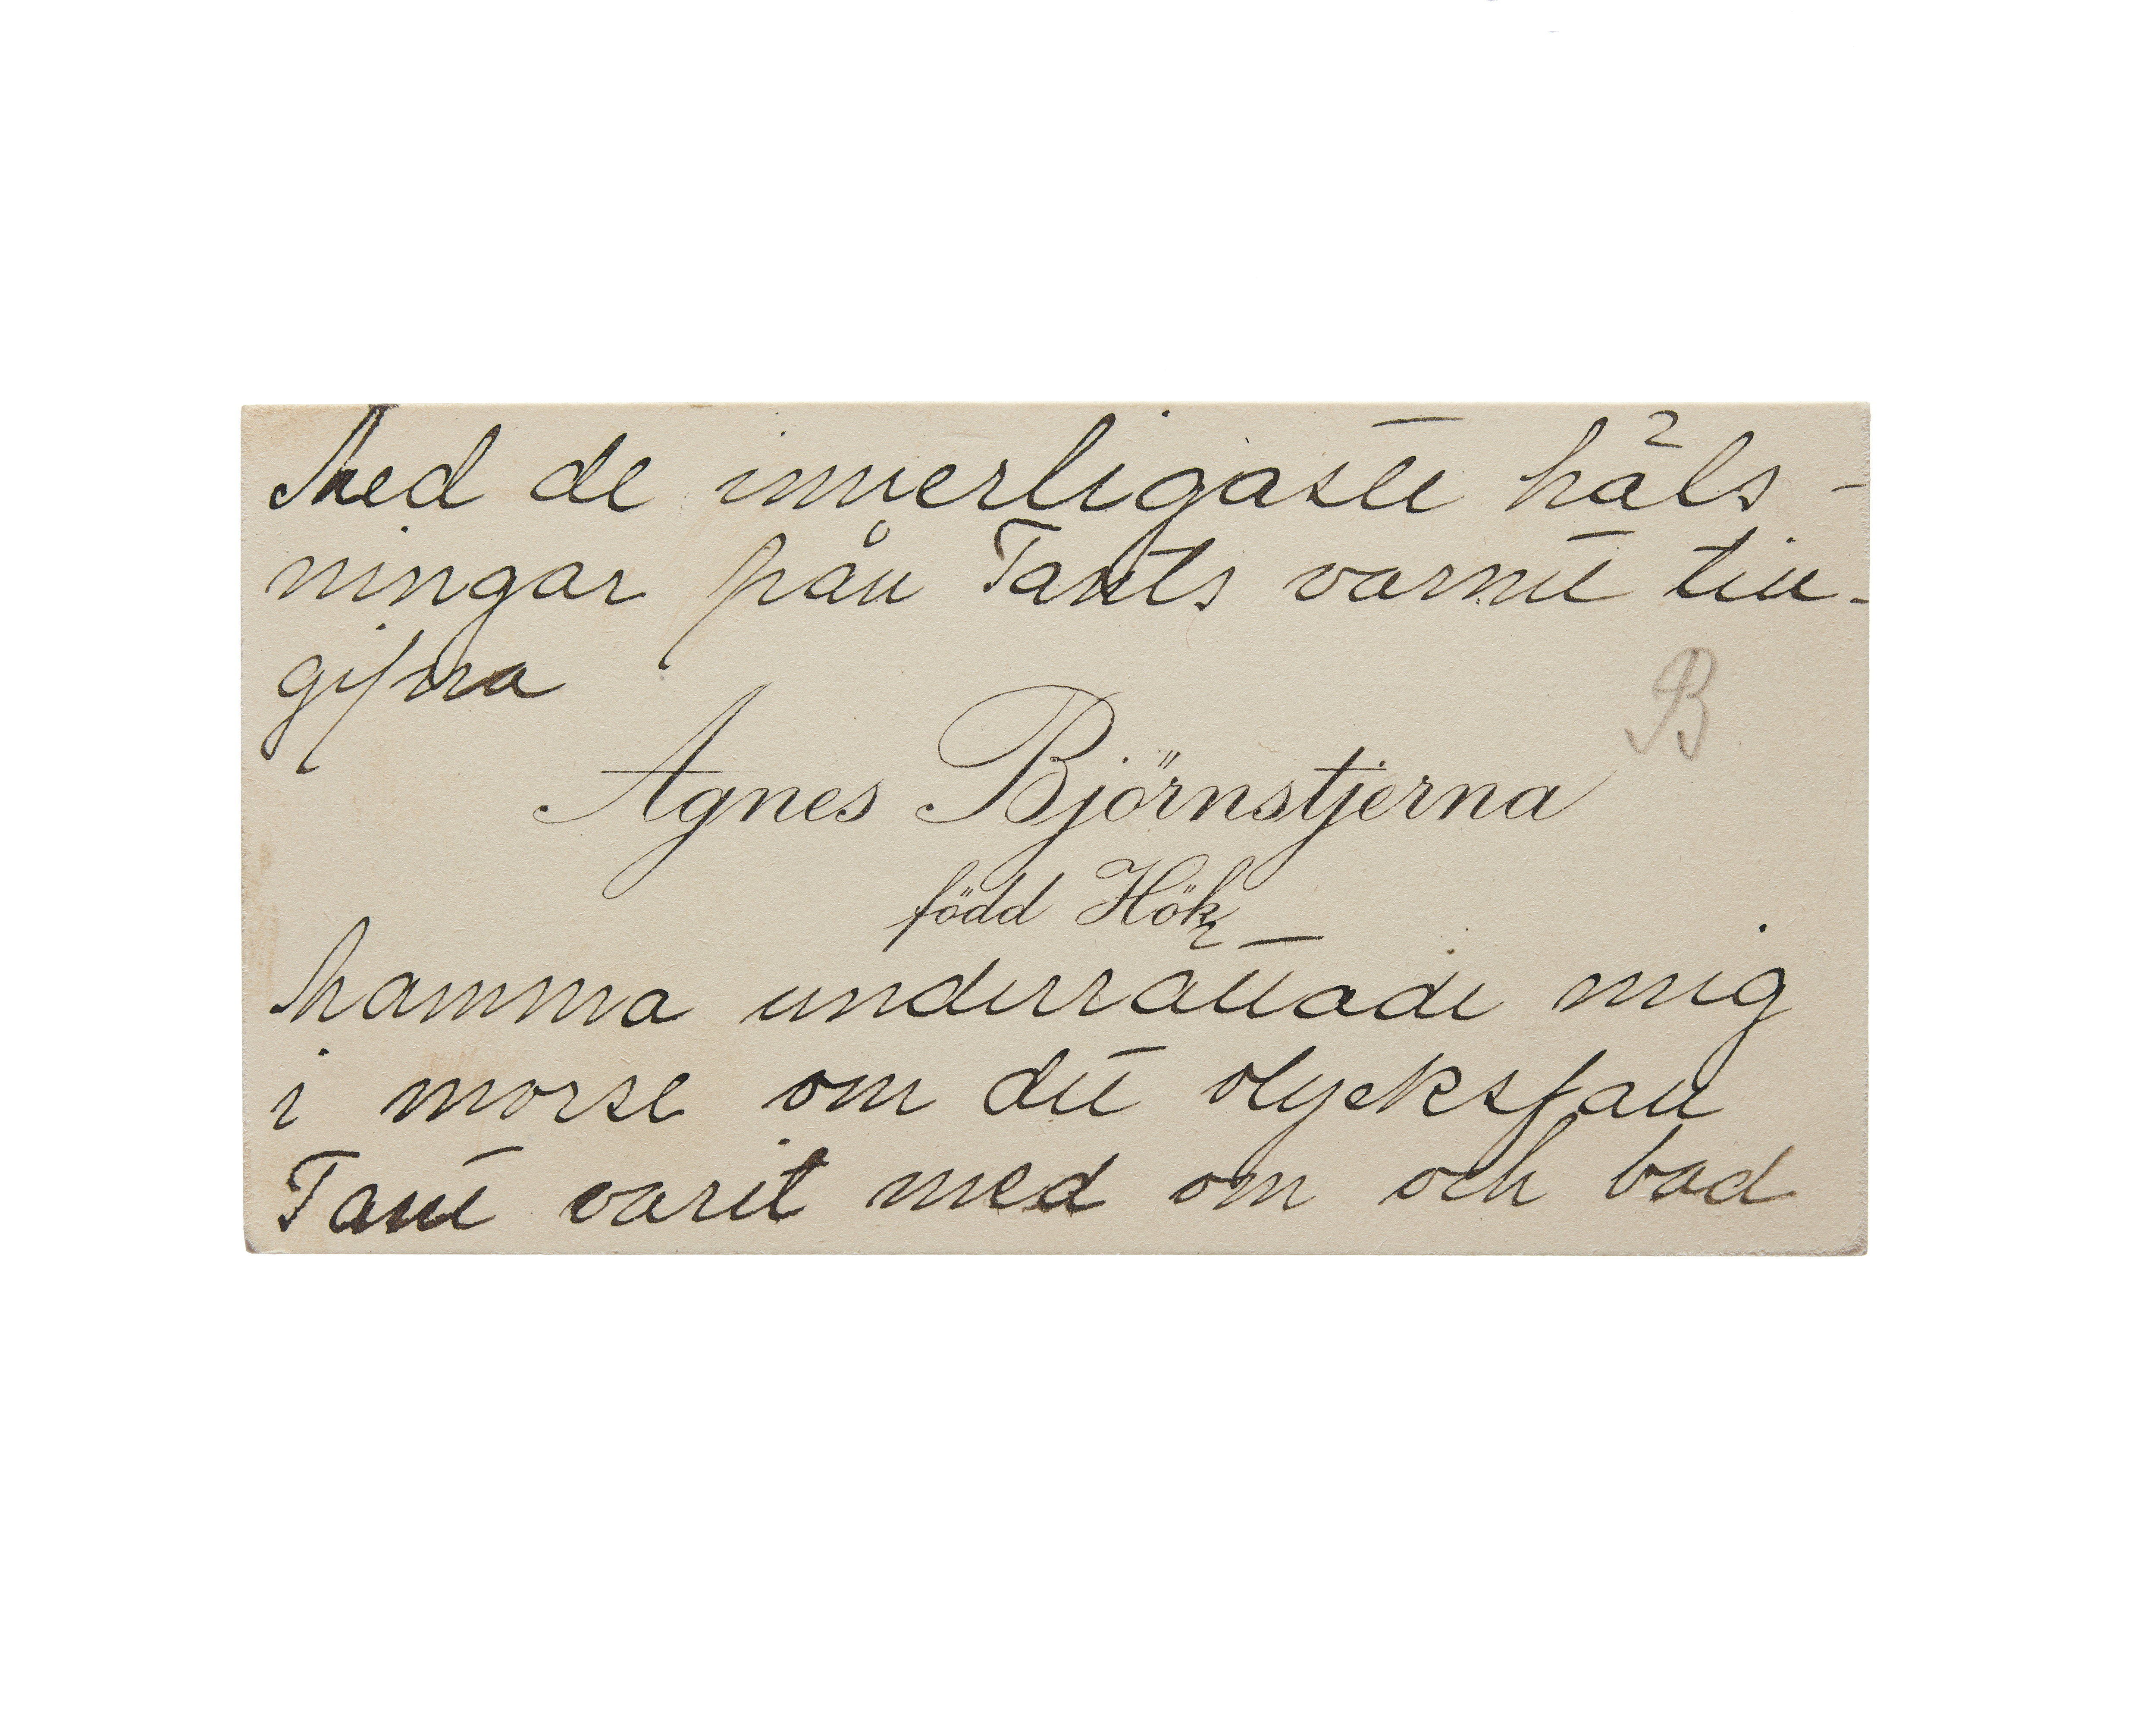 Med de innerligaste häls-
ningar från Tants varmt till-
gifna
B
Agnes Björnstjerna
född Hök
Mamma underrättade mig
i morse om det olycksfall
Tant varit med om och bad